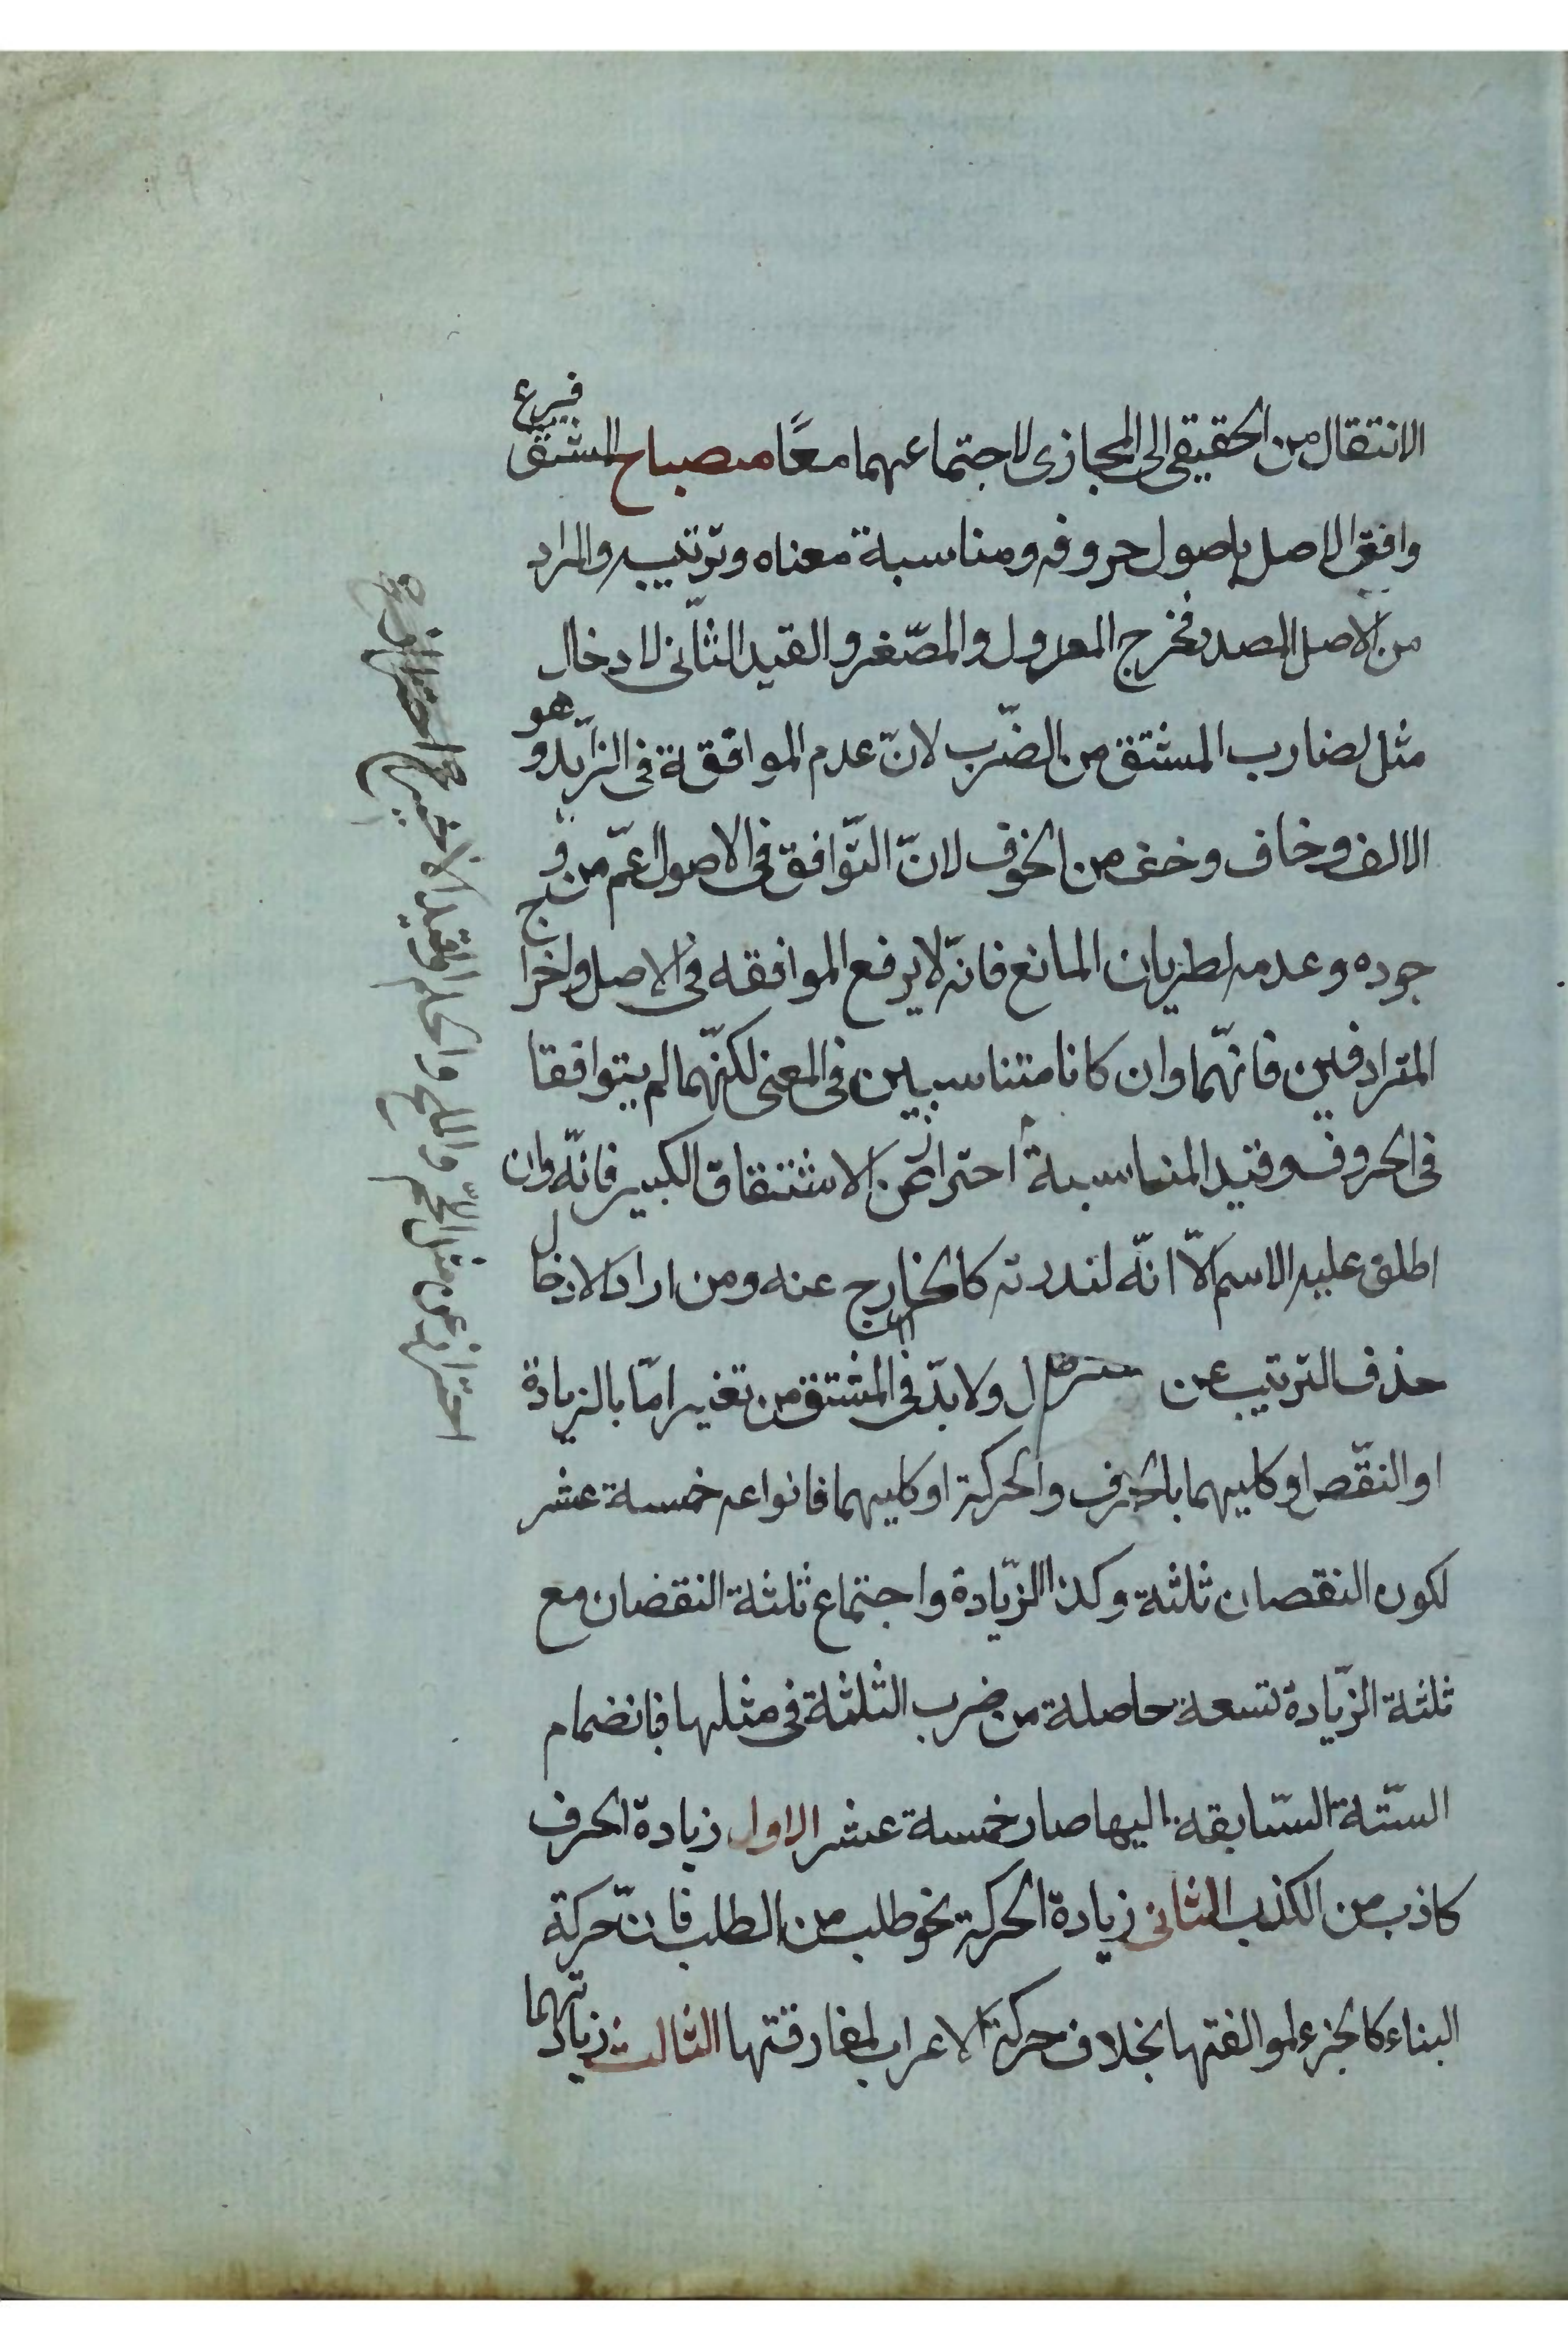 الانتقال من الحقيقى الى المجازى لاجتماعهما معًا مصباح المشتق فرع
وافق الاصل باصول حروفه ومناسبة معناه وترتيبه والمراد
من الاصل المصدر فخرج المعدول والمصّغر والقيد الثّانى لادخال
مثل ضارب المشتق من الضّرب لانّ عدم الموافقة فى الزّايد وهو
الالف وخاف وخف من الخوف لانّ التّوافق فى الاصول اعمّ من و
جوده وعدمه لطريان المانع فانّه لا يرفع الموافقه فى الاصل واخراج
المترادفين فانّهما وان كانا متناسبين فى المعنى لكنّهما لم يتوافقا
فى الحروف وقيد المناسبة احتراز عن الاشتقاق الكبير فانّه وان
اطلق عليه الاسم الّا انّه لندرته كالخارج عنه ومن اراد الادخال
حذف الترتيب عن ولا بدّ فى المشتق من تغيير امّا بالزيادة
او النقّص او كليهما بالحرف والحركة او كليهما فانواعه خمسة عشر
لكون النقصان ثلثة وكذا الزّيادة واجتماع ثلثة النقصان مع
ثلثة الزّيادة تسعة حاصلة من ضرب الثلثة فى مثلها فبانضمام
الستّة السّابقة اليها صار خمسة عشر الاول زيادة الحرف
كاذب من الكذب الثانى زيادة الحركة نحو طلب من الطلب فانّ حركة
البناء كالجزء لموالفتها بخلاف حركة الاعراب لمفارقتها الثالث زيادتهما